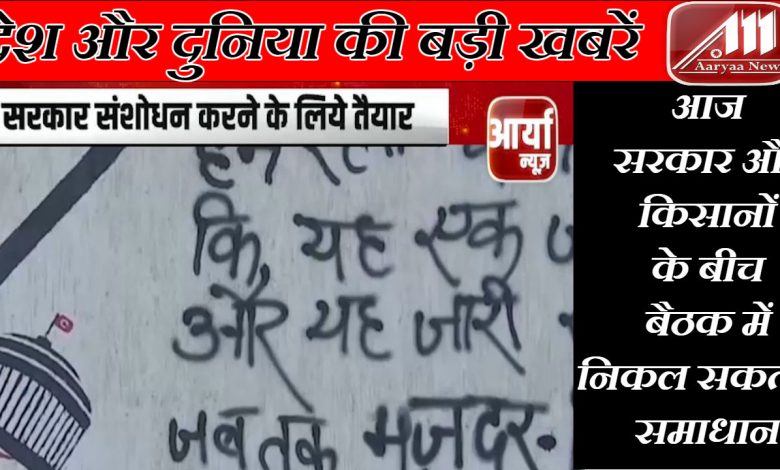 देश और दुनिया की बड़ी खबरें
Aaryaa News
सरकार संशोधन करने के लिये तैयार
आर्या
न्यूज़
कि, यह एक
और यह जारी
जब तक मजदूर-
आज
सरकार औ
किसानों
के बीच
बैठक में
निकल सकत
समाधान